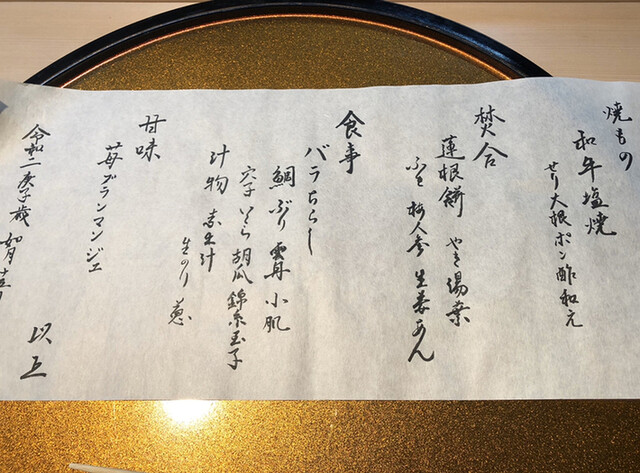 焼もの
和牛塩焼
せり大根ポン酢和え
焚合
蓮根餅 やき湯葉
ふき 梅人参 生姜あん
食事
バラちらし
鯛 ぶり 雲丹 小肌
穴子 いくら 胡瓜 錦糸玉子
汁物 赤出汁
生のり 葱
甘味
苺ブランマンジェ
令和二庚子歳 如月
以上